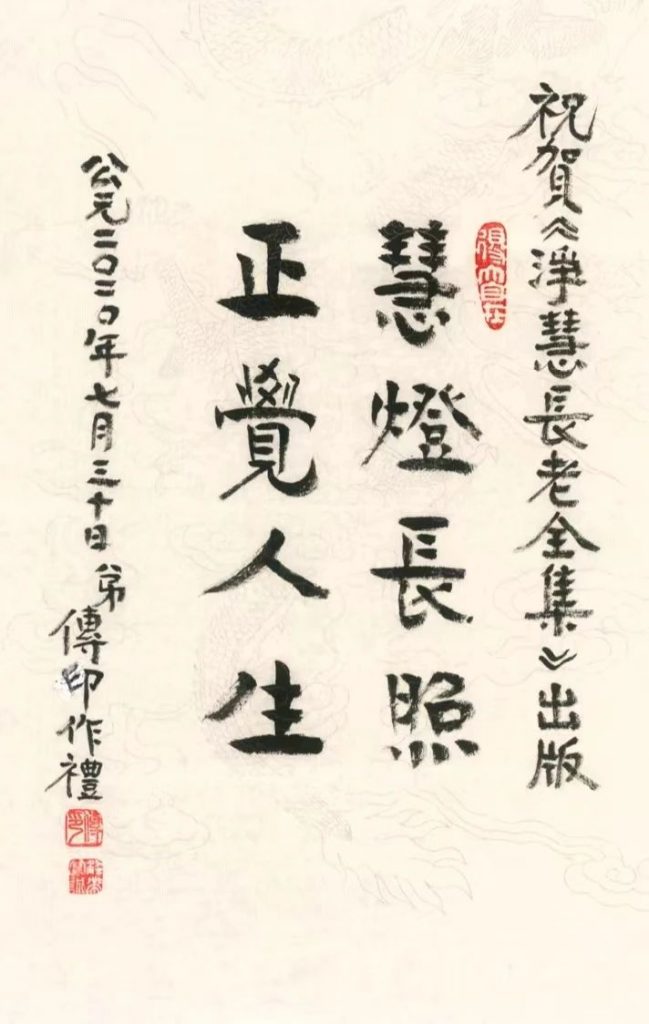 祝賀《淨慧長老全集》出版
得大自在
慧燈長照
正覺人生
公元二〇二〇年七月三十日弟
傳印作禮
傳印